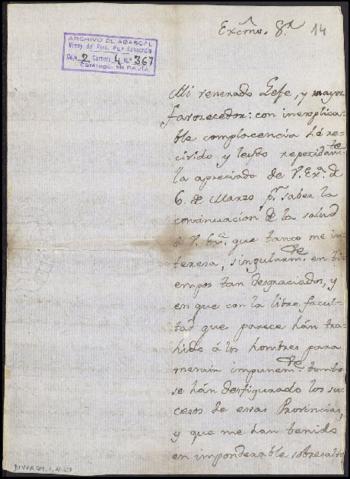 Excmo. Sr.
14
ARCHIVO DE ABASCAL
Virrey del Perú
Caja 2 Carpeta 4 Nº 367
Mi venerado Gefe, y mayor
favorecedor: con inexplica-
ble complacencia hé re-
civido y leydo repetidamte.
la apreciada de V. Exa. de
6. de Marzo, pr. saber la
continuacion de la salud
de V. Exa. que tanto me in-
teresa, singularmte. en ti-
empos tan desgraciados, y
en que con la libre facul-
tad que parece hán tra-
hido á los hombres para
mentir impunemte.
se hán desfigurado los su-
cesos de estas Provincias,
y que me han tenido
en imponderable sobresalto